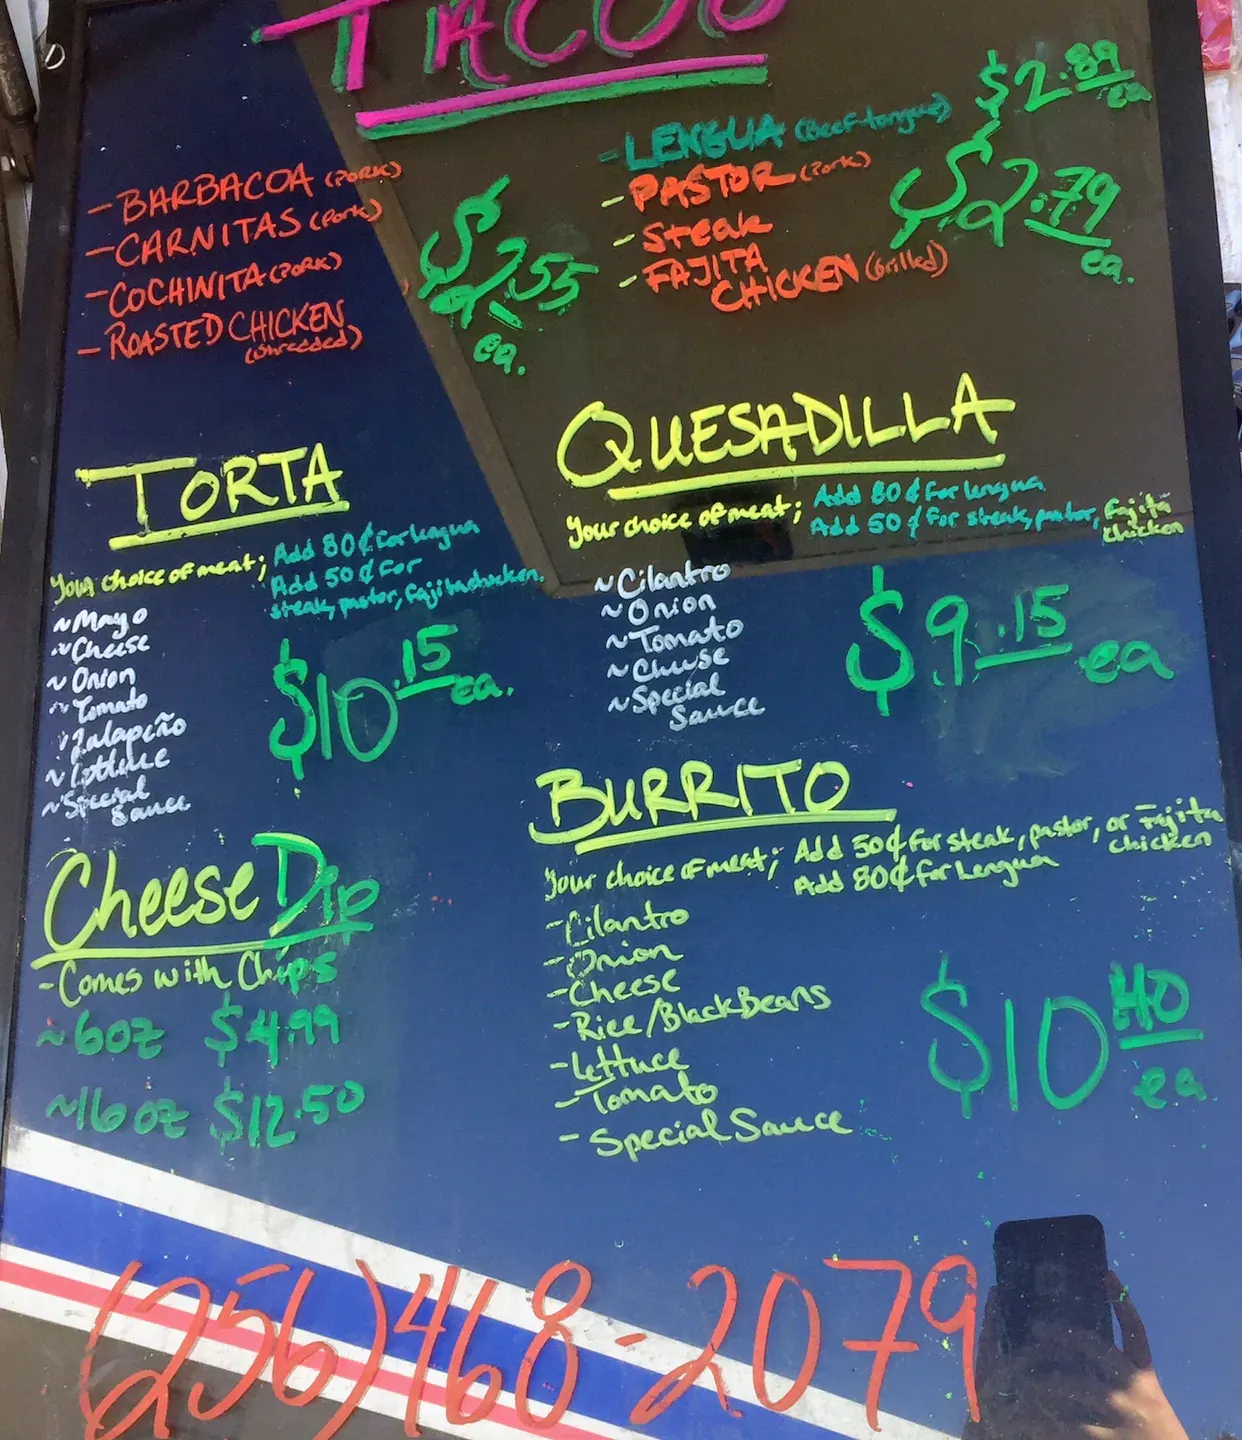 TACOS
- BARBACOA (PORK)
- CARNITAS (Pork)
- COCHINITA (PORK)
- ROASTED CHICKEN
(Shredded)
$2.55
ea.
- LENGUA (Beef-tongue)
$2.89
ea
- PASTOR (Pork)
- Steak
- FAJITA
CHICKEN (Grilled)
$2.79
ea.
TORTA
Your choice of meat; Add 80¢ for lengua
Add 50¢ for
steak, pastor, fajita chicken.
~Mayo
~Cheese
~Onion
~Tomato
~Jalapeño
~Lettuce
~Special
Sauce
$10.15
ea.
QUESADILLA
Your choice of meat; Add 80¢ for lengua
Add 50¢ for steak, pastor, fajita
chicken
~Cilantro
~Onion
~Tomato
~Cheese
~Special
Sauce
$9.15 ea
Cheese Dip
- Comes with Chips
~6oz $4.99
~16oz $12.50
BURRITO
Your choice of meat; Add 50¢ for steak, pastor, or Fajita
chicken
Add 80¢ for Lengua
- Cilantro
- Onion
- Cheese
- Rice/Black Beans
- Lettuce
- Tomato
- Special Sauce
$10 40
ea
(256) 468-2079